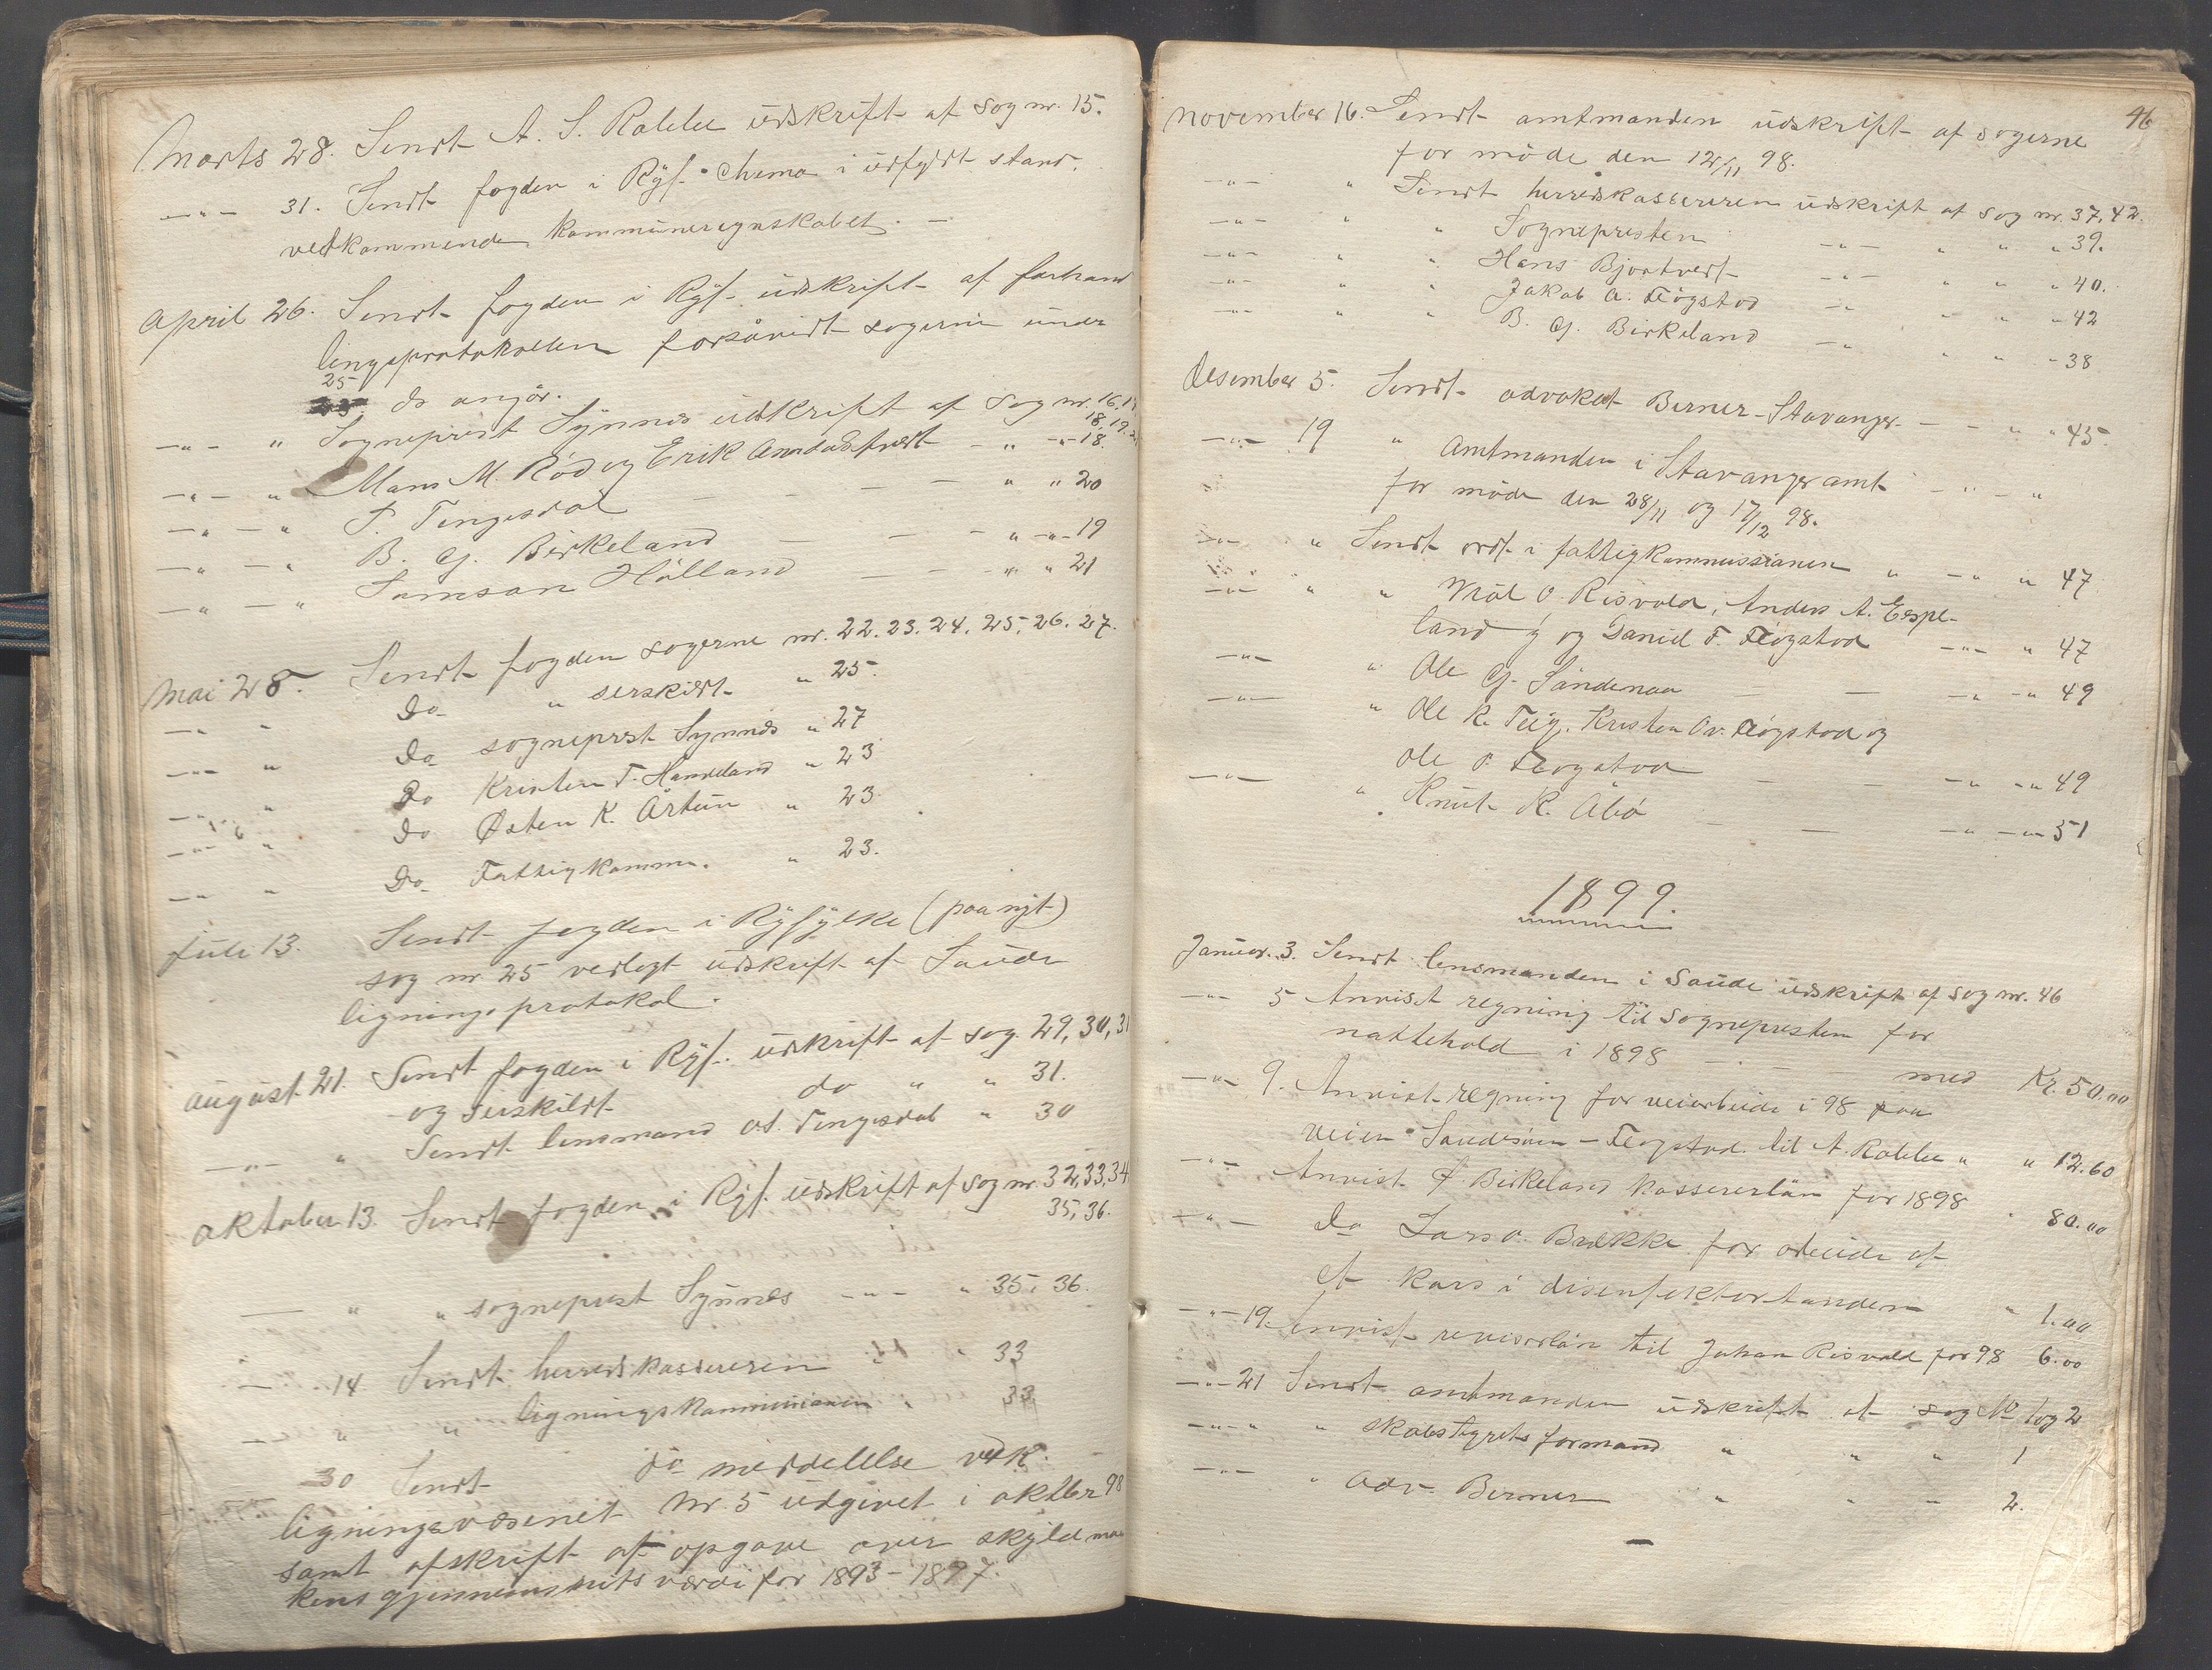 Marts 28. Sendt A. S. Rabbe udskrift af sog nr. 15.
—"— 31. Sendt fogden i Ryf. Chema i udfyldt stand.
vedkommende kommuneregnskabet. —
April 26. Sendt fogden i Ryf. udskrift af forhand
lingsprotokollen forsåvidt sagerne under
25
do angår.
—"— " Sogneprest Synnes udskrift af Sog nr. 16.17.
18, 19.
—"— " Mans M. Röd og Erik — " —"— 18.
—"— " T. Tengesdal — — — — " " 20
—"— " B. G. Birkeland — — — " —"— 19
—"— " Samson Hölland — — —"— " 21
Mai 28. Sendt fogden sogerne nr. 22. 23. 24. 25. 26. 27.
—"— " Do " serskildt " 25.
—"— " Do sogneprest Synnes " 27
—"— " Do Kristen T. Handeland " 23
—"— " Do Østen K. Årtun " 23
—"— " Do Fattigkomm. " 23.
Juli 13. Sendt fogden i Ryfylke (paa nyt)
sog nr 25 vedlagt udskrift af Saude
ligningsprotokol.
August 21. Sendt fogden i Ryf. udskrift af sog. 29, 30, 31
og serskildt do " " 31.
—"— " Sendt lensmand Tengesdal " 30
Oktober 13. Sendt fogden i Ryf. udskrift af sog nr. 32, 33, 34
35, 36.
— " " sogneprest Synnes —"— " 35, 36.
— 14 Sendt herredskassereren " " 33
— " " ligningskommissionen " 33
30 Sendt do meddelelse vedk.
ligningsvæsenet Nr. 5 udgivet i oktbr 98
samt afskrift af opgave over skyldmar
kens gjennemsnits værdi for 1893–1897.
46
November 16. Sendt amtmanden udskrift af sogerne
for möde den 12/11 98.
—"— " Sendt herredskassereren udskrift af sog nr. 37, 42.
—"— " " Sognepresten —"— " " " 39.
—"— " " Hans Bjortvedt —"— " " " 40.
—"— " " Jakob A. Fløgstad —"— " " " 42
—"— " " B. G. Birkeland —"— " " " 38
Desember 5. Sendt advokat Berner - Stavanger — — " " 45.
—"— 19 " Amtmanden i Stavanger amt —"— "
for möde den 28/11 og 17/12 98.
—"— " Sendt ordf. i fattigkommissionen " —"— " 47
—"— " " O. Risvold, Anders A. Espe-
land og Daniel F. Fløgstad —"— " 47
—"— " Ole G. Söndenaa — — —"— —"— 49
—"— " Ole K. Teig, Kristen Ov. Fløgstad og
Ole P. Fløgstad — — —"— —"— 49
—"— " Knut K. Åbö — — —"— —"— 51
1899.
Januar. 3. Sendt lensmanden i Saude udskrift af sog nr. 46
—"— 5 Anvist regning til sognepresten for
nattehold i 1898 — — — med Kr. 50.00
—"— 9. Anvist regning for veiarbeide i 98 paa
veien Saudesöen - Fløgstad til A. Rabbe " " 12.60
—"— Anvist P. Birkeland kassererlön for 1898 " 80.00
—"— Do Lars O. Brække for arbeide af
et kars i disenfektortanden " 1.00
—"— 19. Anvist revisorlön til Johan Risvold for 98 6.00
—"— 21 Sendt amtmanden udskrift af sog No 1 og 2
—"— " " skolestyrets formand " " " 1
—"— " Adv. Berner " " — 2.